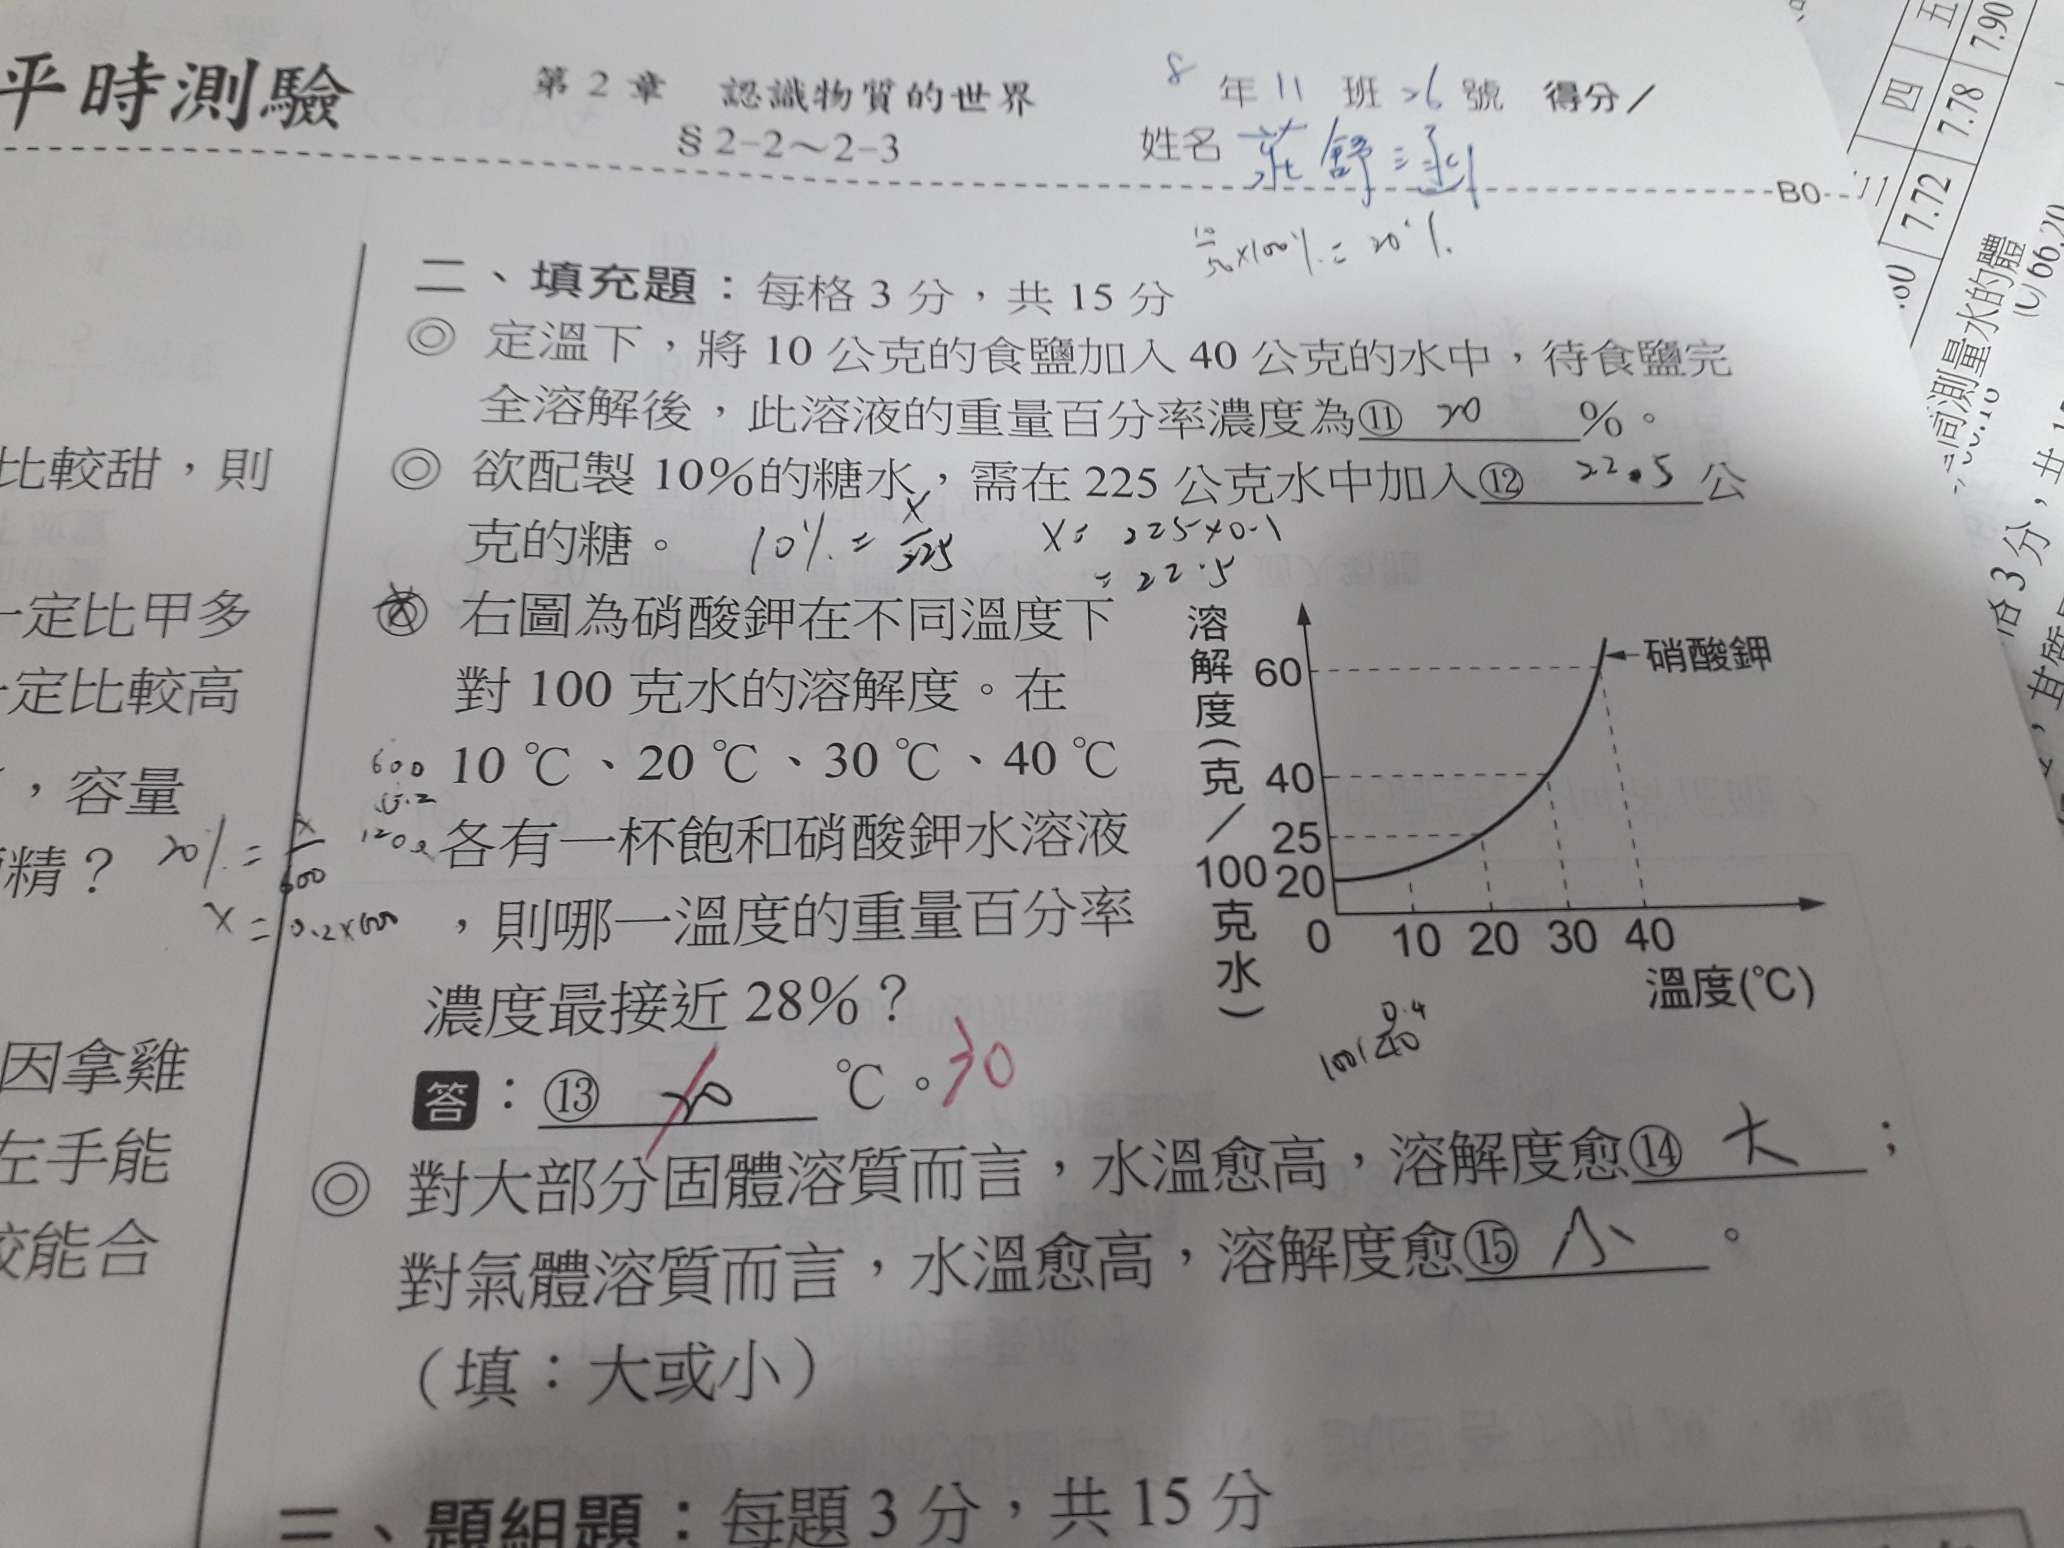 平時測驗
第2章 認識物質的世界
§2-2～2-3
8年11班26號 得分／
姓名
B0
10/50×100%=20%
二、填充題：每格3分，共15分
◎ 定溫下，將10公克的食鹽加入40公克的水中，待食鹽完
全溶解後，此溶液的重量百分率濃度為⑪ 20 %。
◎ 欲配製10%的糖水，需在225公克水中加入⑫ 22.5 公
克的糖。
10%=X/225 X=225×0.1
=22.5
◎ 右圖為硝酸鉀在不同溫度下
對100克水的溶解度。在
10℃、20℃、30℃、40℃
各有一杯飽和硝酸鉀水溶液
，則哪一溫度的重量百分率
濃度最接近28%？
答：⑬ 20 ℃。30
溶解度(克／100克水)
60
40
25
20
0 10 20 30 40
溫度(℃)
硝酸鉀
0.4
100 40
◎ 對大部分固體溶質而言，水溫愈高，溶解度愈⑭ 大 ；
對氣體溶質而言，水溫愈高，溶解度愈⑮ 小 。
（填：大或小）
三、題組題：每題3分，共15分
比較甜，則
一定比甲多
一定比較高
，容量
精？
20%=X/600
X=0.2×600
600
0.2
120
因拿雞
左手能
較能合
五
四
三
7.90
7.78
7.72
測量水的體
66.20
3分，共